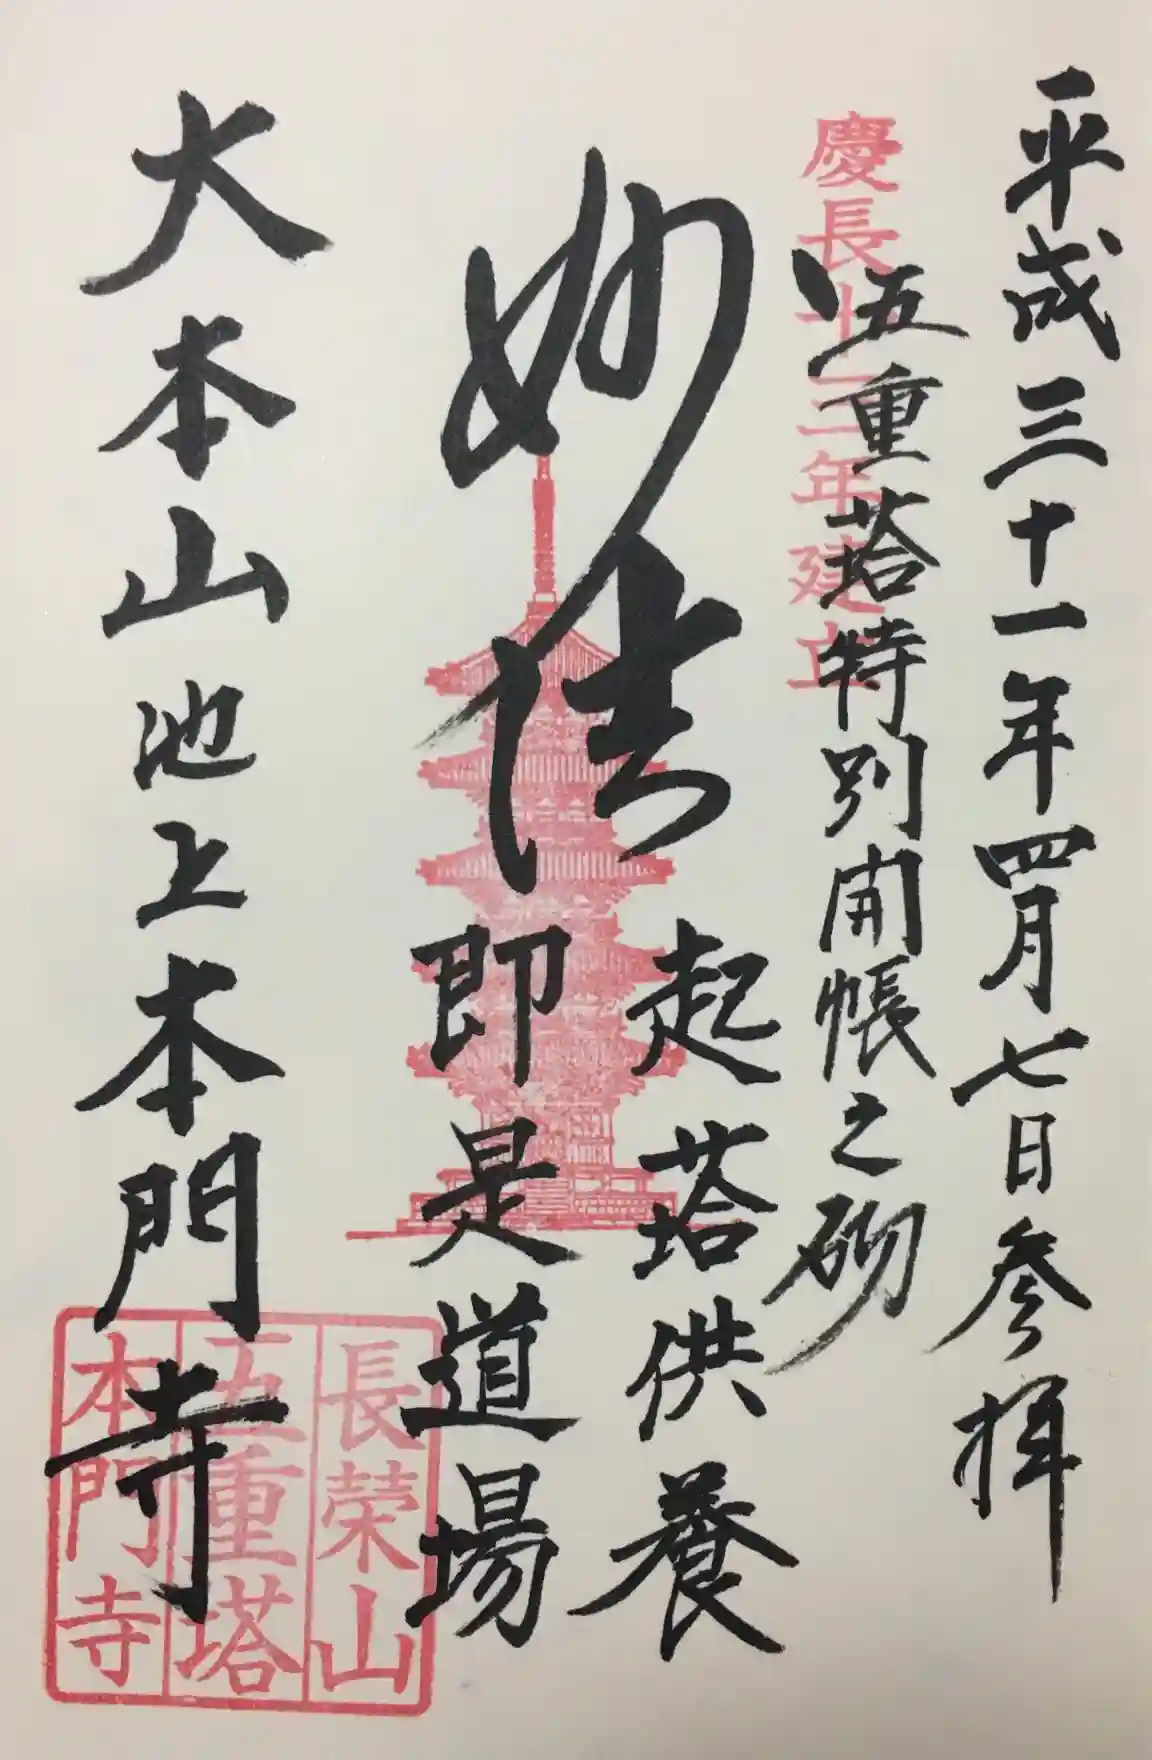 平成三十一年四月七日参拝
慶長十三年建立
五重塔特別開帳之砌
妙法
起塔供養
即是道場
大本山池上本門寺
長榮山
五重塔
本門寺